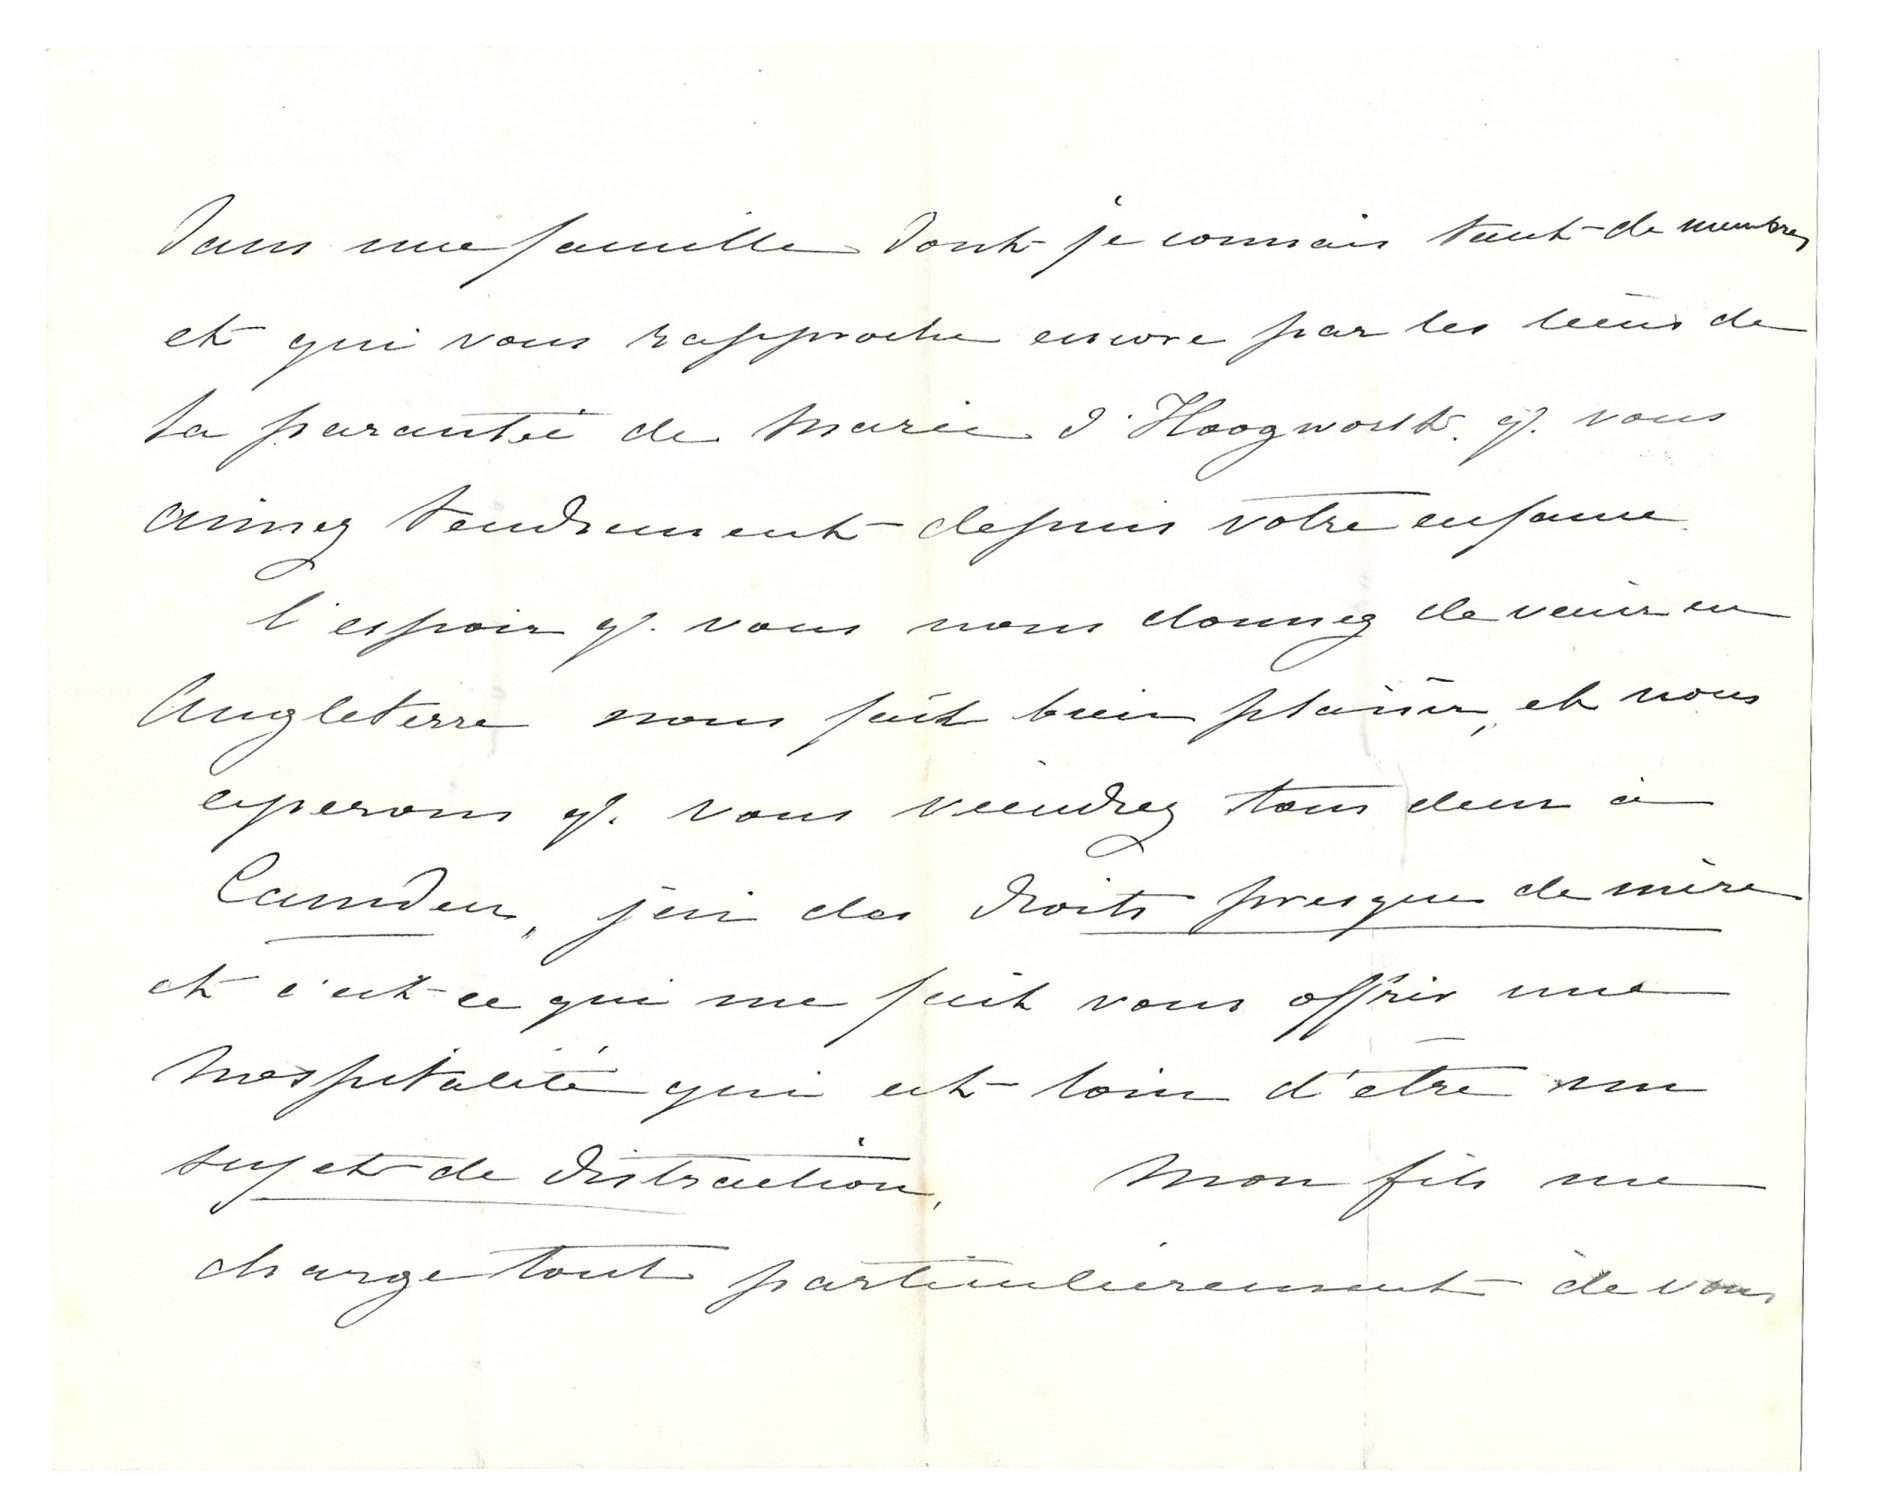 dans une famille dont je connais tant de membres
et qui vous rapproche encore par les liens de
la paranté de Marie d'Hoogworst. q. vous
aimez tendrement depuis votre enfance.
l'espoir q. vous nous donnez de venir en
Angleterre nous fait bien plaisir, et nous
esperons q. vous viendrez tous deux à
Camden, j'ai des droits presque de mère
et c'est ce qui me fait vous offrir une
hospitalité qui est loin d'être un
sujet de distraction. Mon fils me
charge tout particulierement de vous